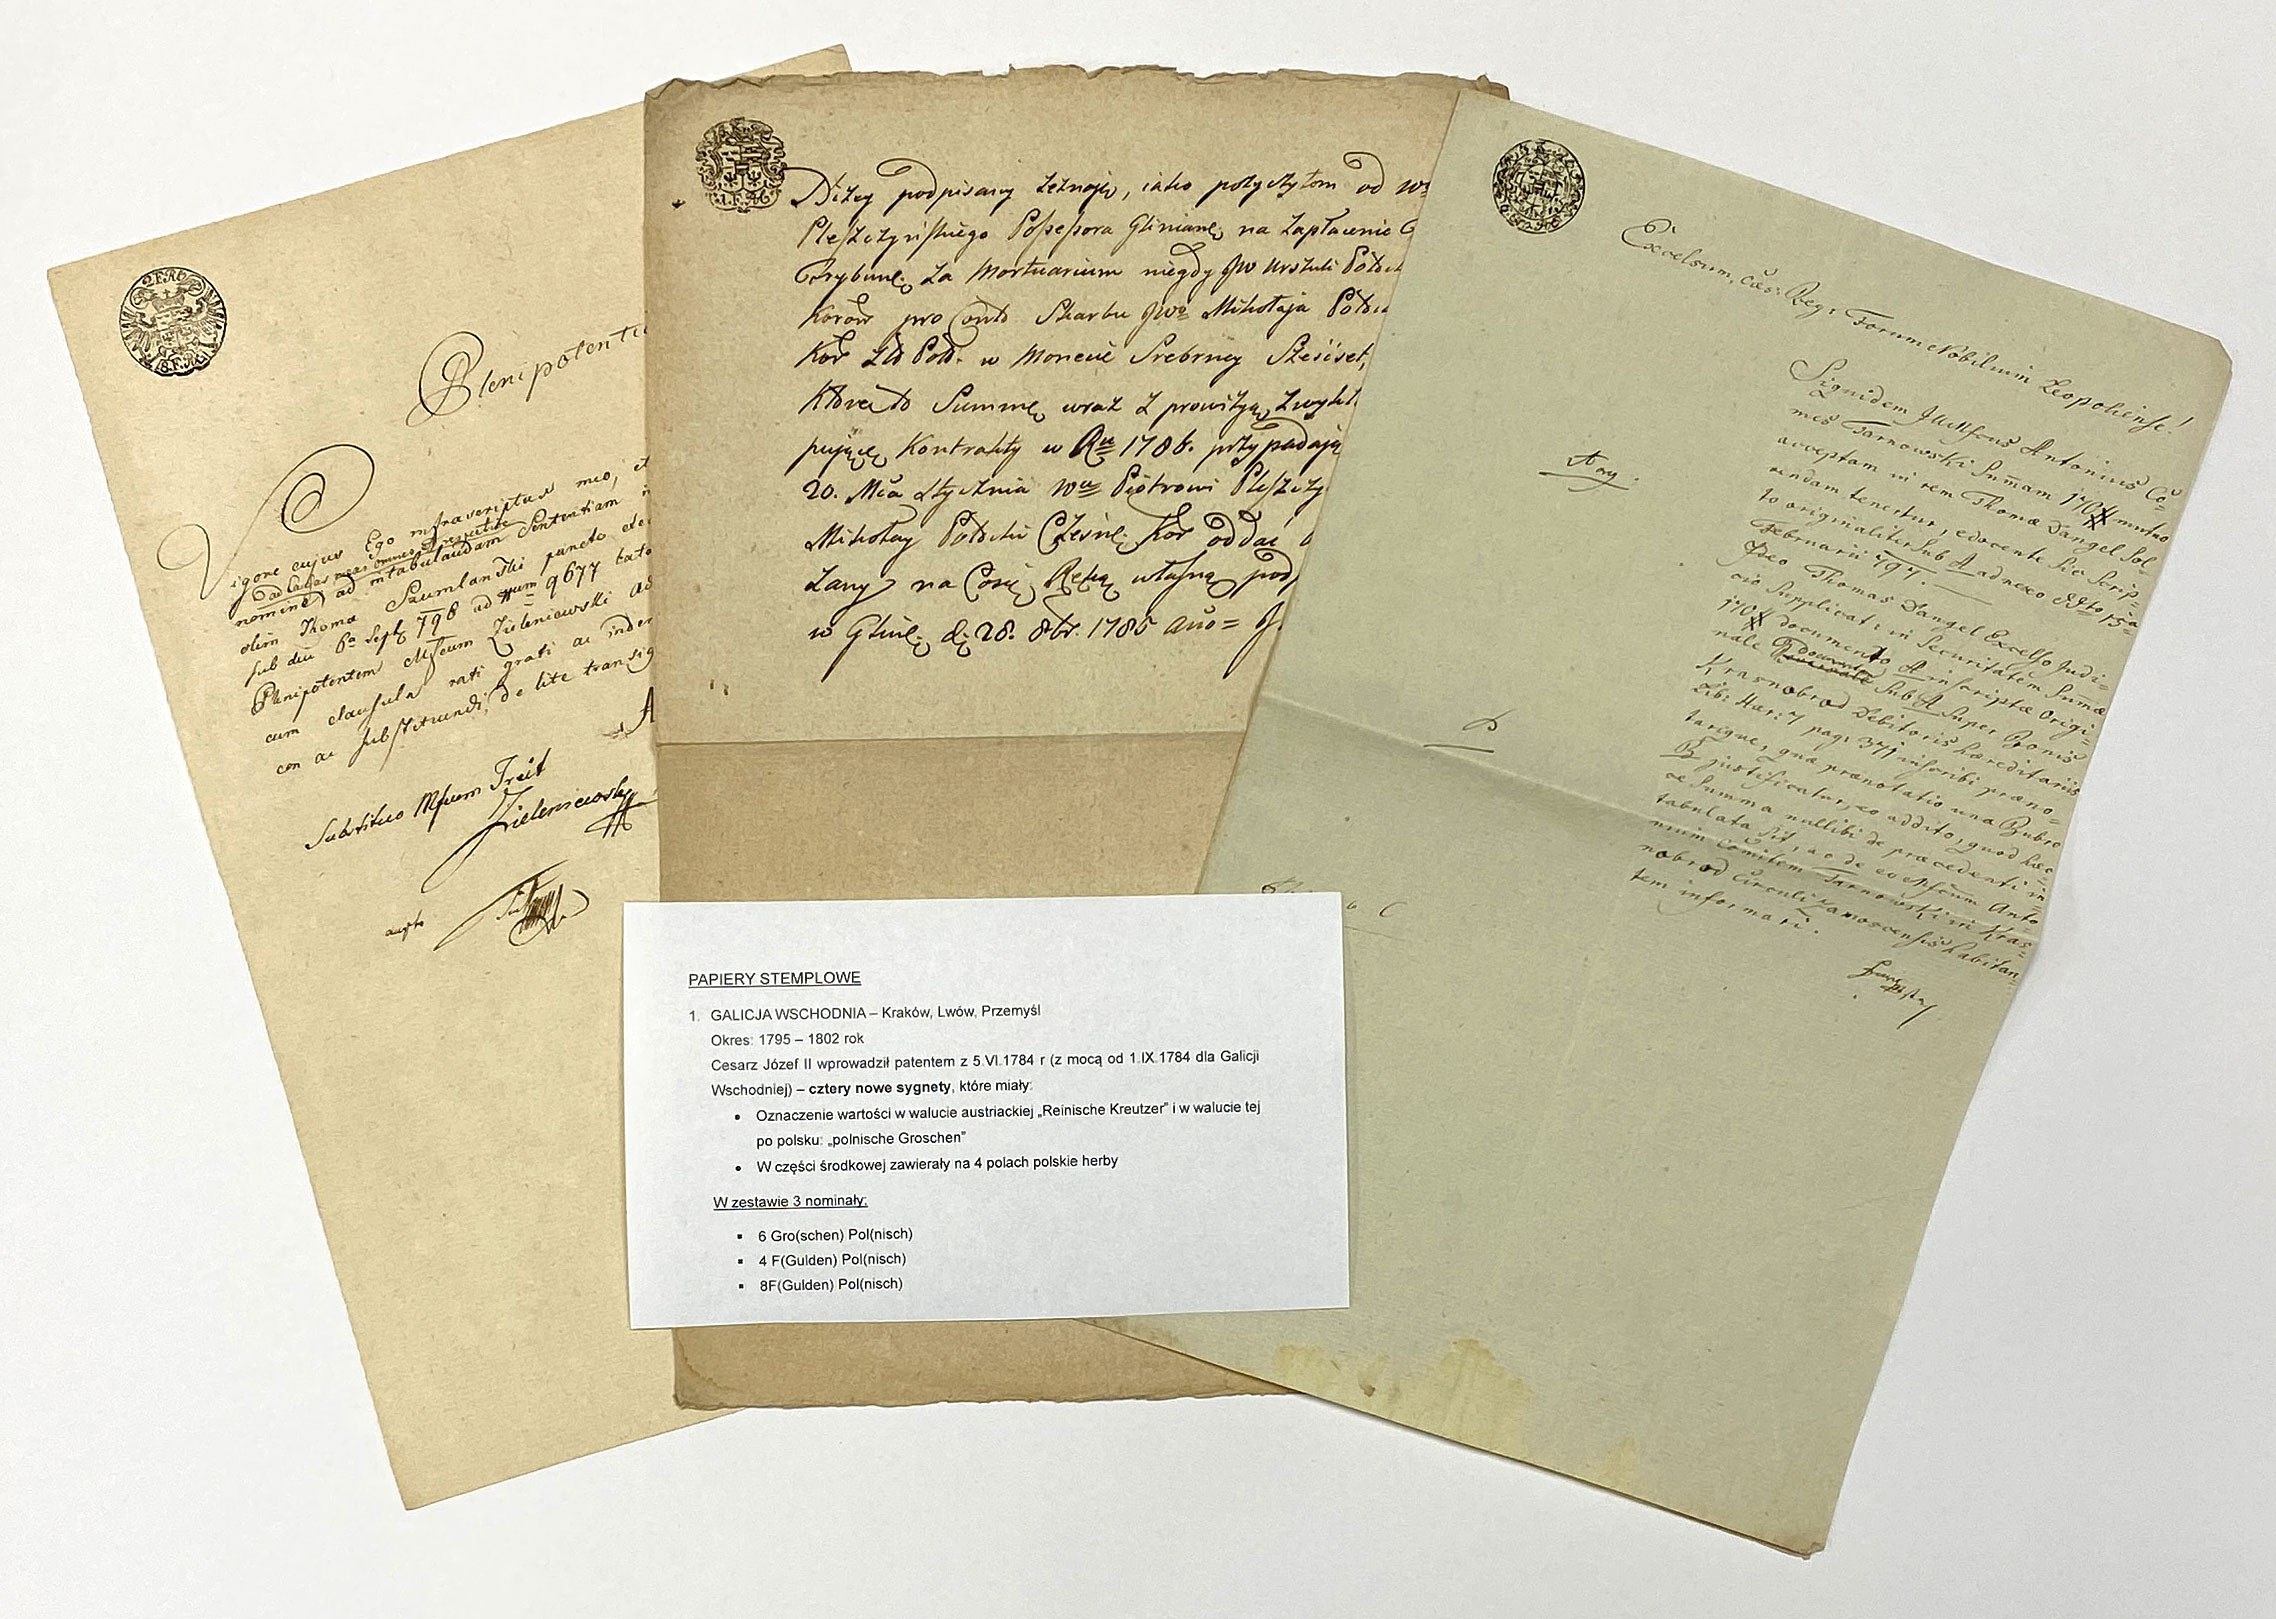 2 F.R.
8.F.
Plenipotenti
Vigore cujus Ego infrascriptus meo, et
nomine) ad intabulandam Sententiam
olim Thoma Szumlanski puncto
sub die 6a Sept 798 ad Num 9677
Plenipotentem Zieleniewski
cum clausula rati grati ac
con ac substituendi, de lite transig
Substituo Treit
Zieleniewsky
1.F.
Niżey podpisany zeznaię, iako pożyczyłem od
Possessora Gliniań na zapłacenie
Trybunę za Mortuarium niegdy JW Urszuli Potoc
pro Conto Skarbu JWo Mikołaja Potoc
Kor Pol. w Monecie Srebrney Sześćset,
Którą to Summę wraz z prowizyą zwykł
pującę Kontrakty w Ru 1786. przypadają
20. Mca Stycznia Piotrowi
Mikołay Potocki Cześnik Kor oddać
na Co się Ręką własną pod
w Glinę d: 28. 8br. 1785
Excelsum, Cæs: Reg: Forum Nobilium Leopoliense!
Siquidem Illustris Antonius Co=
mes Tarnowski Summam 170 # mutuo
acceptam in rem Thomæ Dangel Sol=
vendam tenetur, edocente Sic Scrip=
to originaliter Sub A adnexo 15a
Februarii 797.
Ideo Thomas Dangel Excelso Judi=
cio Supplicat: in Securitatem Summæ
170 # documento A inscriptæ Origi=
nale Sub A Super Bonis
Krasnobrod Debitoris hæreditariis
Lib: Hær: 7 pag: 371 inscribi præno=
tarique, quæ prænotatio una Rubro
B justificatur, eo addito, quod hæc
Summa nullibi de præcedenti in=
tabulata sit, ac de eo Anto=
nium Comitem Tarnowski in Kras=
nobrod Circuli Zamoscensis habitan
tem informari.
PAPIERY STEMPLOWE
1. GALICJA WSCHODNIA – Kraków, Lwów, Przemyśl
Okres: 1795 – 1802 rok
Cesarz Józef II wprowadził patentem z 5.VI.1784 r (z mocą od 1.IX.1784 dla Galicji
Wschodniej) – cztery nowe sygnety, które miały:
• Oznaczenie wartości w walucie austriackiej „Reinische Kreutzer” i w walucie tej
po polsku: „polnische Groschen”
• W części środkowej zawierały na 4 polach polskie herby
W zestawie 3 nominały:
▪ 6 Gro(schen) Pol(nisch)
▪ 4 F(Gulden) Pol(nisch)
▪ 8F(Gulden) Pol(nisch)